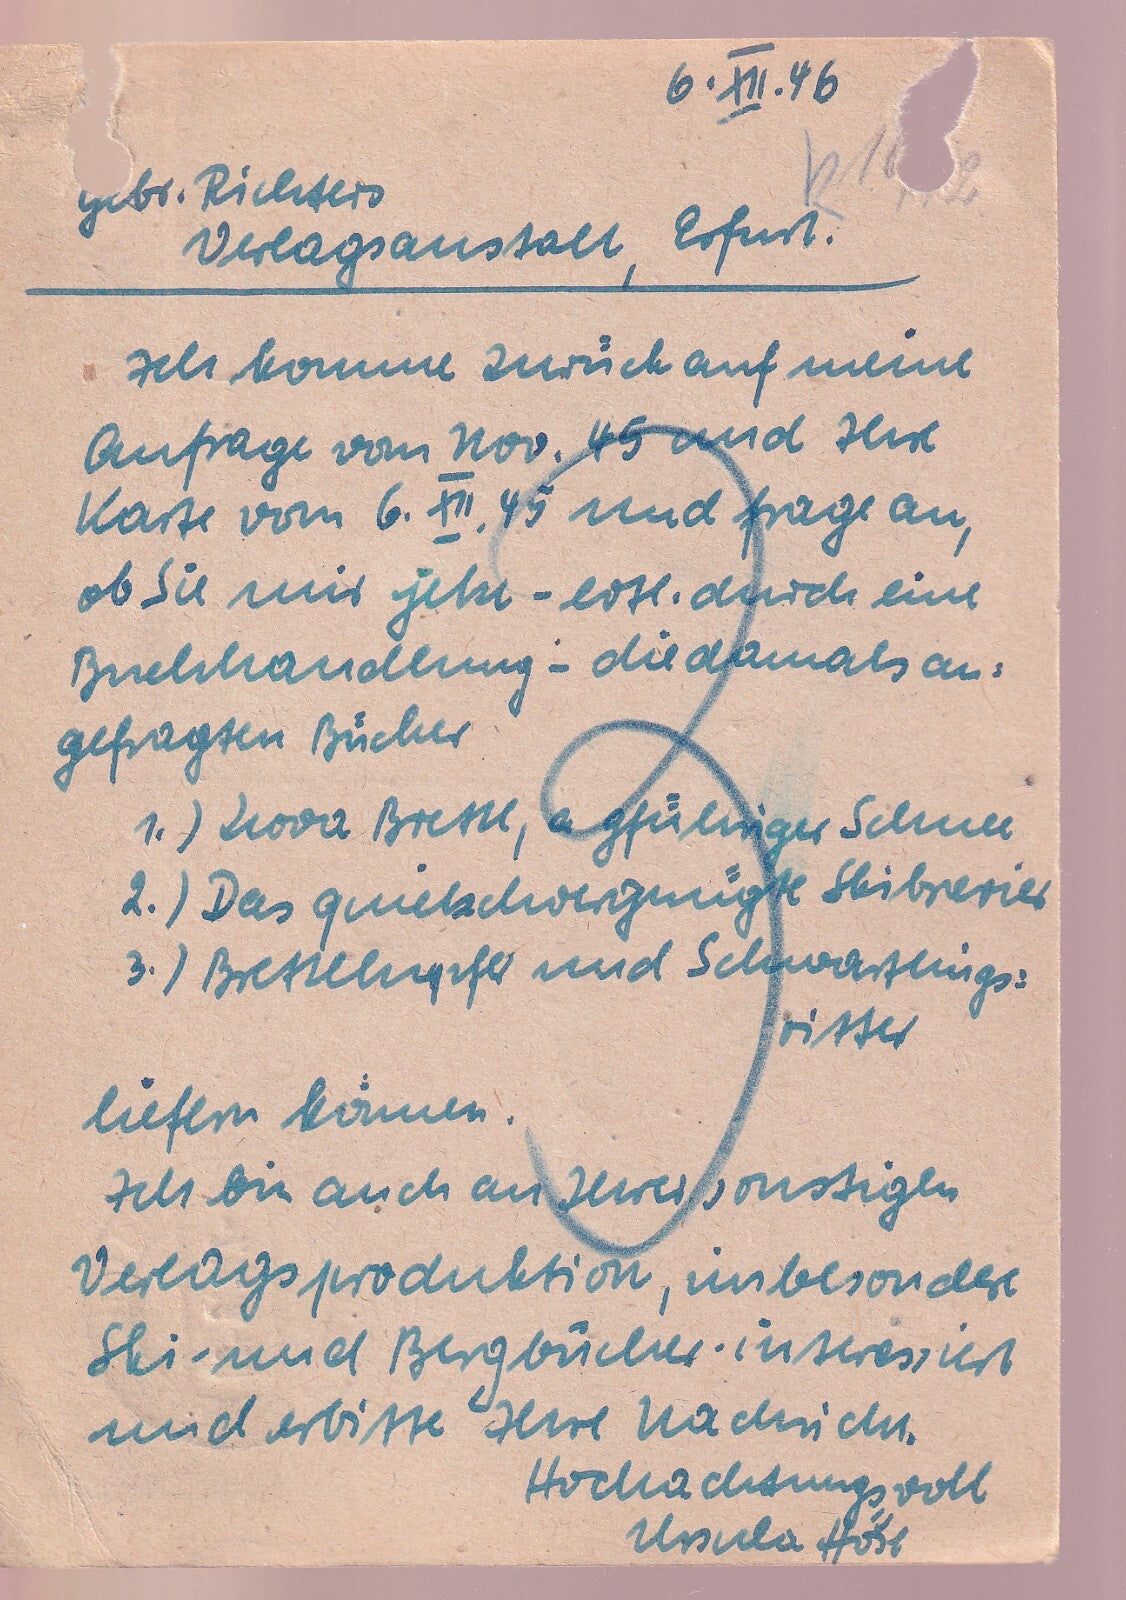 6.XII.46
gebr. Richters
Verlagsanstalt, Erfurt.
Ich komme zurück auf meine
Anfrage vom Nov. 45 und Ihre
Karte vom 6.XII.45 und frage an,
ob Sie mir jetzt - evtl. durch eine
Buchhandlung - die damals an:
gefragten Bücher
1.) Hoppla Brettl, a gführiger Schnee
2.) Das quietschvergnügte Skibrevier
3.) Brettlhupfer und Schwartlings:
ritter
liefern können.
Ich bin auch an Ihrer sonstigen
Verlagsproduktion, insbesondere
Ski- und Bergbücher interessiert
und erbitte Ihre Nachricht.
Hochachtungsvoll
Ursula